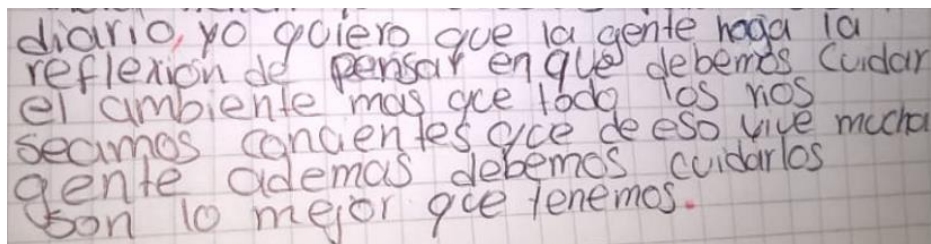 diario, yo quiero que la gente haga la
reflexión de pensar en que debemos cuidar
el ambiente mas que todo los rios
seamos concientes que de eso vive mucha
gente ademas debemos cuidarlos
son lo mejor que tenemos.